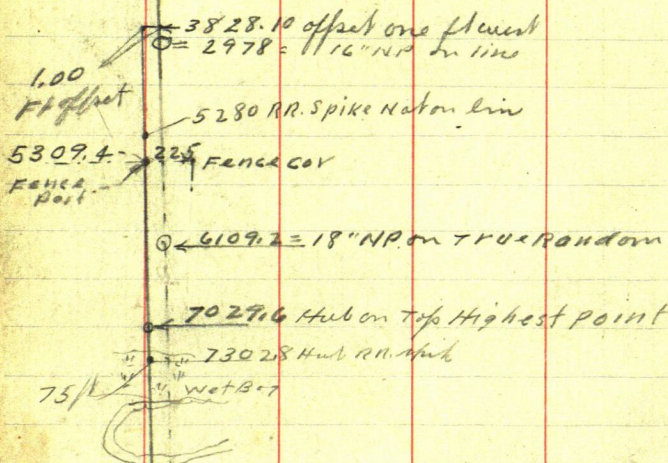 3828.10 offset one ft west
= 2978 = 16" NP on line
1.00
Ft offset
5280 RR. Spike Not on lin
5309.4 - 225 Fence Cor
Fence
Post
6109.2 = 18" NP. on True Random
7029.6 Hub on Top Highest Point
7302.8 Hub RR. Spik
75 ft Wet Bog